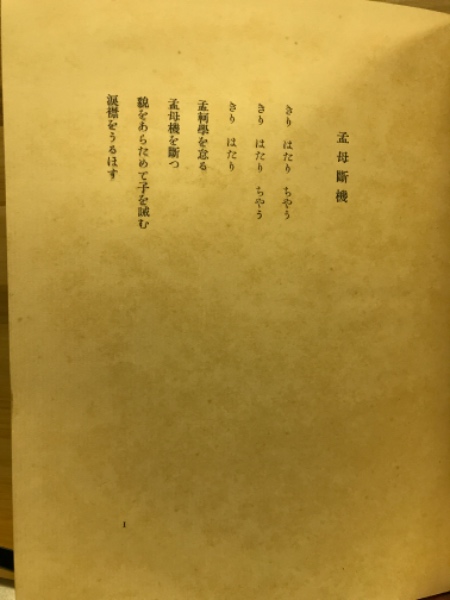 孟母斷機
きり はたり ちやう
きり はたり ちやう
きり はたり
孟軻學を怠る
孟母機を斷つ
貌をあらためて子を誡む
淚襟をうるほす
1